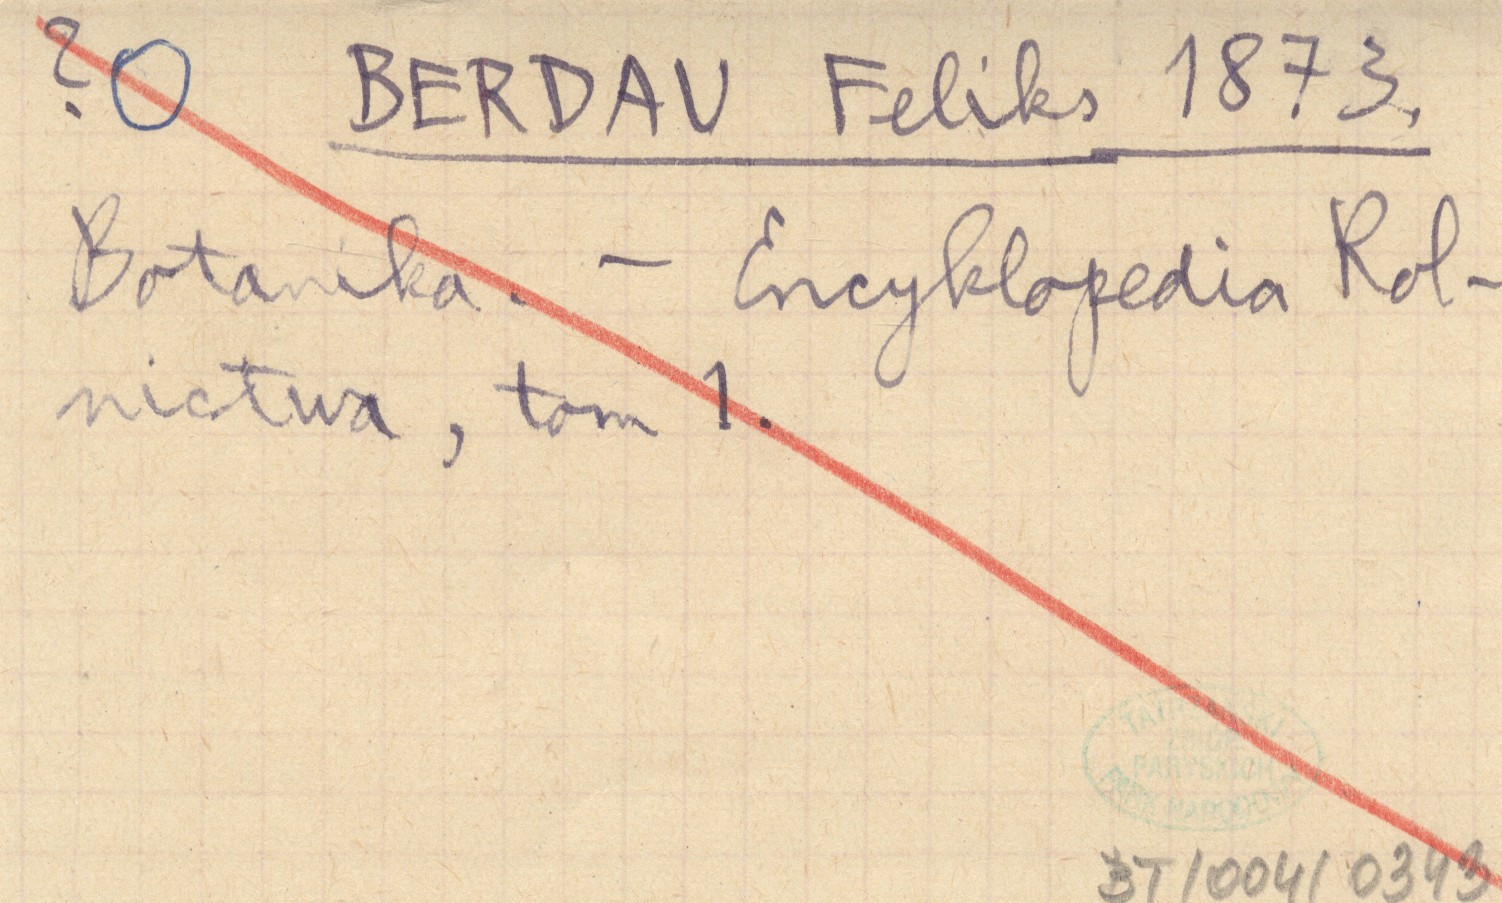 ? O BERDAU Feliks 1873.
Botanika. – Encyklopedia Rol-
nictwa, tom 1.
PARK NARODOWY
BT/004/0343